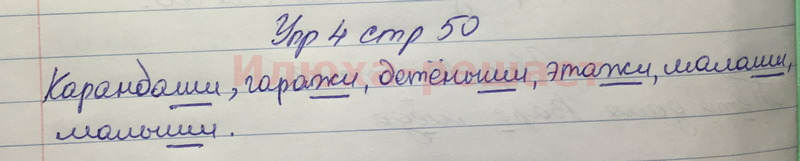 Упр 4 стр 50
Карандаши, гаражи, детёныши, этажи, малаши,
малыши.
Илюха-решает